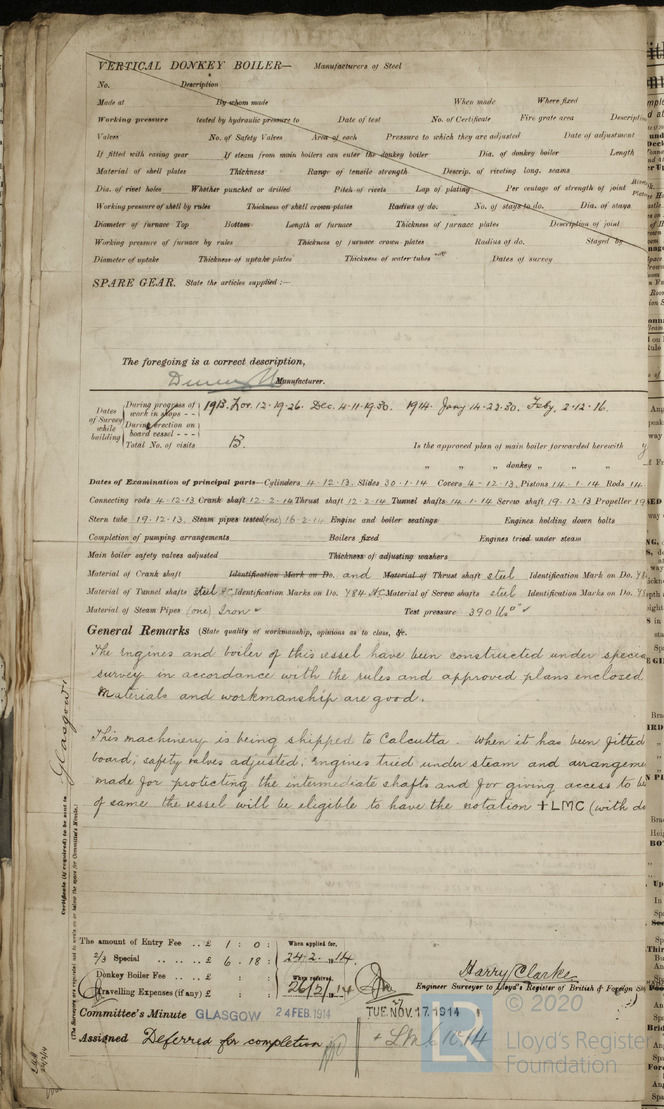 VERTICAL DONKEY BOILER— Manufacturers of Steel
No. Description
Made at By whom made When made Where fixed
Working pressure tested by hydraulic pressure to Date of test No. of Certificate Fire grate area Descripti
Valves No. of Safety Valves Area of each Pressure to which they are adjusted Date of adjustment
If fitted with easing gear If steam from main boilers can enter the donkey boiler Dia. of donkey boiler Length
Material of shell plates Thickness Range of tensile strength Descrip. of riveting long. seams
Dia. of rivet holes Whether punched or drilled Pitch of rivets Lap of plating Per centage of strength of joint
Working pressure of shell by rules Thickness of shell crown plates Radius of do. No. of stays to do. Dia. of stays
Diameter of furnace Top Bottom Length of furnace Thickness of furnace plates Description of joint
Working pressure of furnace by rules Thickness of furnace crown plates Radius of do. Stayed by
Diameter of uptake Thickness of uptake plates Thickness of water tubes Dates of survey
SPARE GEAR. State the articles supplied :—
The foregoing is a correct description,
Manufacturer.
Dates of Survey while building
During progress of work in shops - - 1913. Nov. 12-19-26. Dec. 4-11-19-30. 1914. Jany 14-22-30. Feby. 2-12-16.
During erection on board vessel - - -
Total No. of visits 13. Is the approved plan of main boiler forwarded herewith y
„ „ „ donkey „ „ „
Dates of Examination of principal parts—Cylinders 4-12-13. Slides 30-1-14 Covers 4-12-13. Pistons 14-1-14 Rods 14.
Connecting rods 4-12-13 Crank shaft 12-2-14 Thrust shaft 12-2-14 Tunnel shafts 14-1-14 Screw shaft 19-12-13 Propeller 19
Stern tube 19-12-13. Steam pipes tested (one) 16-2-14 Engine and boiler seatings Engines holding down bolts
Completion of pumping arrangements Boilers fixed Engines tried under steam
Main boiler safety valves adjusted Thickness of adjusting washers
Material of Crank shaft Identification Mark on Do. and Material of Thrust shaft steel Identification Mark on Do.
Material of Tunnel shafts steel Identification Marks on Do. 484. Material of Screw shafts steel Identification Marks on Do.
Material of Steam Pipes (one) Iron Test pressure 390 lbs
General Remarks (State quality of workmanship, opinions as to class, &c.
The Engines and boiler of this vessel have been constructed under specia
survey in accordance with the rules and approved plans enclosed
Materials and workmanship are good.
This machinery is being shipped to Calcutta. When it has been fitted
board; safety valves adjusted; Engines tried under steam and arrangeme
made for protecting the intermediate shafts and for giving access to
of same the vessel will be eligible to have the notation +LMC (with
Certificate (if required) to be sent to Glasgow
(The Surveyors are requested not to write on or below the space for Committee's Minute.)
The amount of Entry Fee .. £ 1 : 0 : When applied for,
2/3 Special .. .. £ 6 . 18 : 24-2-1914.
Donkey Boiler Fee .. .. £ : : When received,
Travelling Expenses (if any) £ : : 26/2/14
Harry Clarke
Engineer Surveyor to Lloyd's Register of British & Foreign
Committee's Minute GLASGOW 24 FEB. 1914 TUE. NOV. 17. 1914
Assigned Deferred for completion + LMC 10.14
© 2020
LR
Lloyd's Register
Foundation